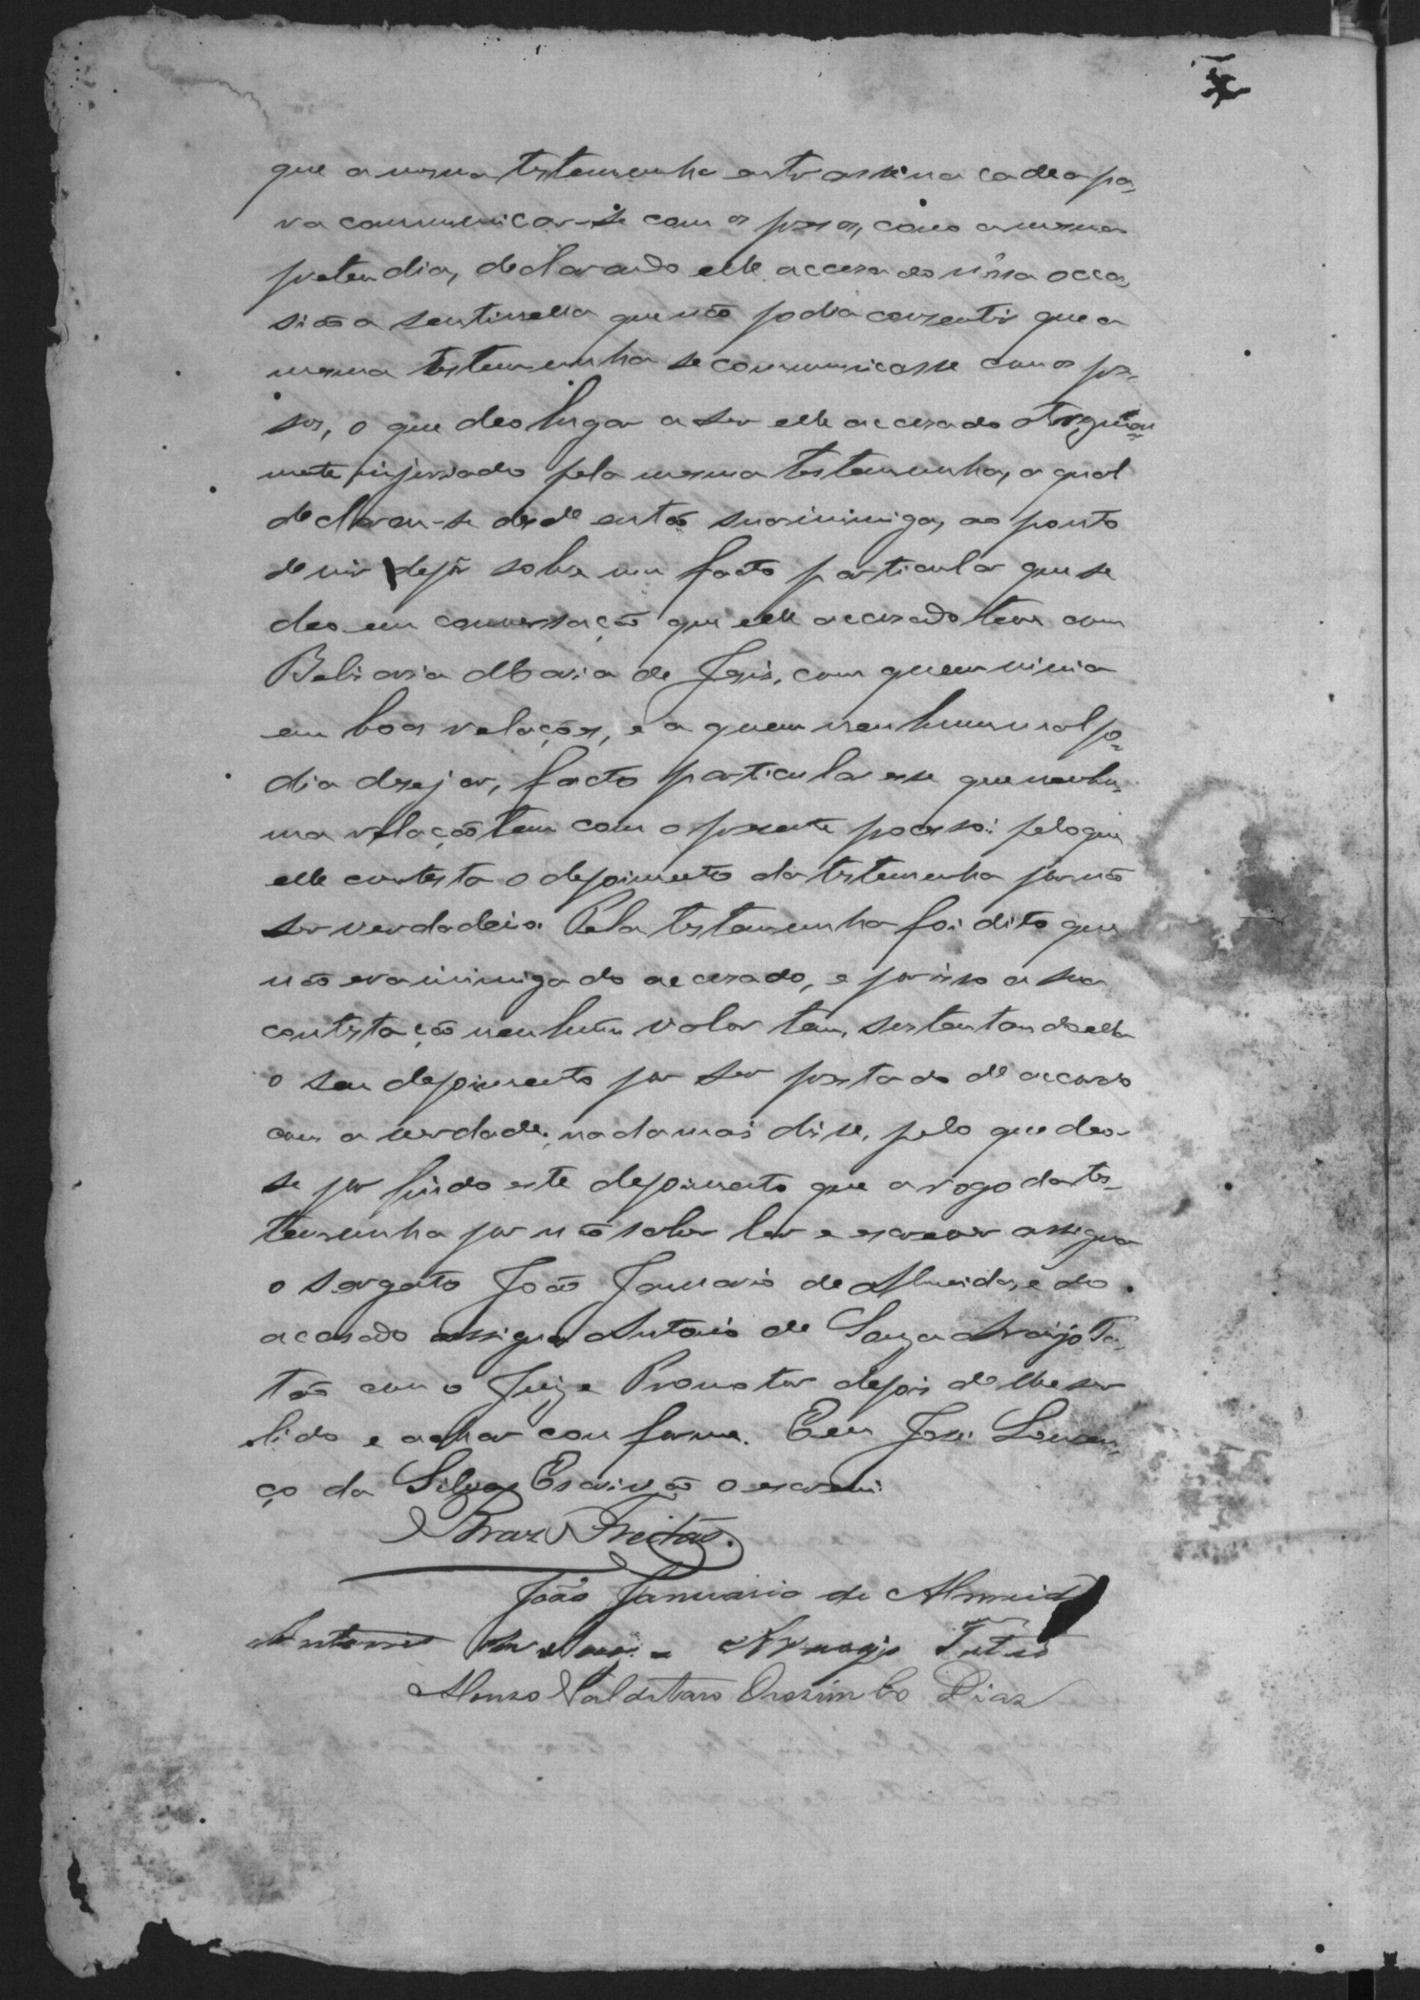 que a mesma testemunha entrasse na cadea pa,
ra communicar-se com os presos, como a mesma
pretendia, declarando elle accusado nessa occa,
sião a sentinella que não podia consentir que a
mesma testemunha se communicasse com os pre,
sos, o que deo lugar a ser elle accusado
mente injuriado pela mesma testemunha, a qual
declarou-se desde então sua inimiga, ao ponto
de vir depôr sobre um facto particular que se
deo em conversação que elle accusado teve com
Belisaria Maria de Jesus, com quem vivia
em boas relações, e a quem nenhum mal po,
dia desejar, facto particular esse que nenhu,
ma relação tem com o presente processo: pelo que
elle contesta o depoimento da testemunha por não
ser verdadeiro. Pela testemunha foi dito que
não era inimiga do accusado, e por isso a sua
contestação nenhum valor tem, sustentando ella
o seu depoimento por ser prestado de accordo
com a verdade; nada mais disse, pelo que deo-
se por findo este depoimento que a rogo da tes-
temunha por não saber ler e escrever assigna
o sargento João Januario de Almeida, e do
acusado assigna Antonio de Souza Araujo Ta,
tão com o Juiz e Promotor depois de lhe ser
lido e achar conforme. Eu José Louren,
ço da Silva, Escrivão o escrevi.
Braz Freitas.
João Januario de Almeida
Antonio de Souza Araujo Tatão
Afonso Valdetaro Orozimbo Dias